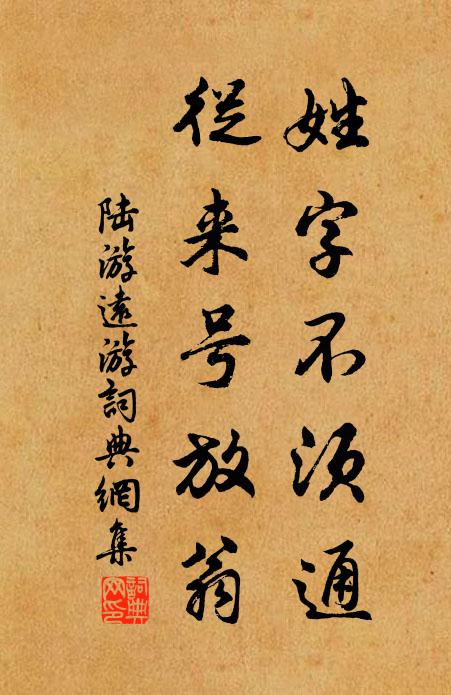 姓字不須通
從来号放翁
陆游遠游詞典網集
詞典网印